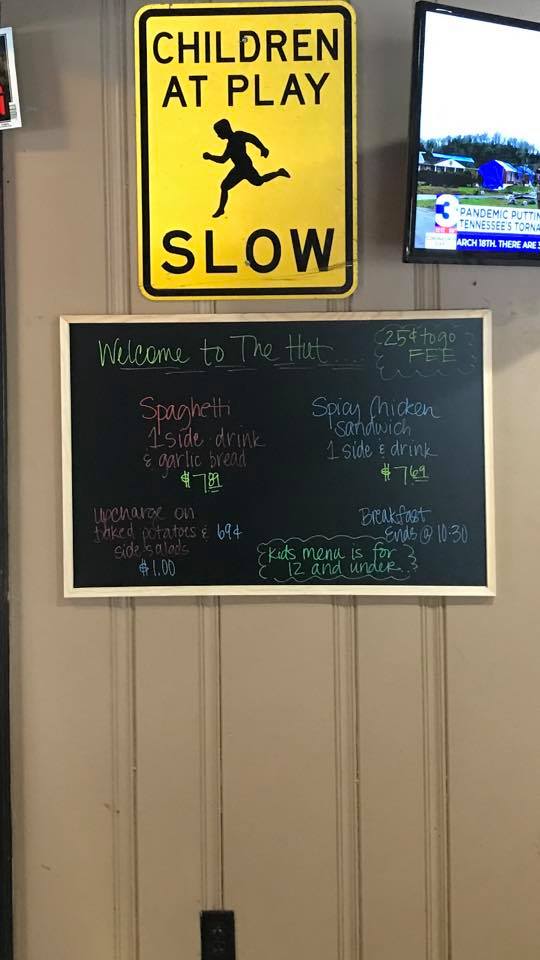 CHILDREN
AT PLAY
SLOW
3
PANDEMIC PUTTIN
TENNESSEE'S TORNA
ARCH 18TH. THERE ARE
Welcome to The Hut....
25¢ to go
FEE
Spaghetti
1 side drink
& garlic bread
$7.89
Spicy Chicken
sandwich
1 side & drink
$7.69
upcharge on
baked potatoes & 69¢
side salads
$1.00
Breakfast
Ends @ 10:30
kids menu is for
12 and under.